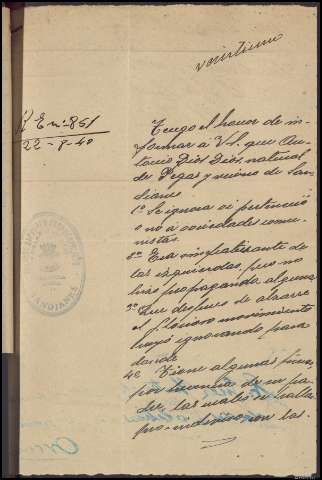 R E nº 851
22-8-40
Tengo el honor de in-
formar a V.S. que An-
tonio Dios Dios natural
de Pegas y vecino de San-
dianes.
1º Se ignora si perteneció
o no a sociedades comu-
nistas.
2º Era simpatizante de
las izquierdas, pero no
hizo propaganda alguna
3º Que despues de alzarse
el glorioso movimiento
huyó ignorando para
donde
4º Tiene algunas fincas
por herencia de su pa-
dre, las cuales se hallan
pro-indiviso con los
SANDIANES